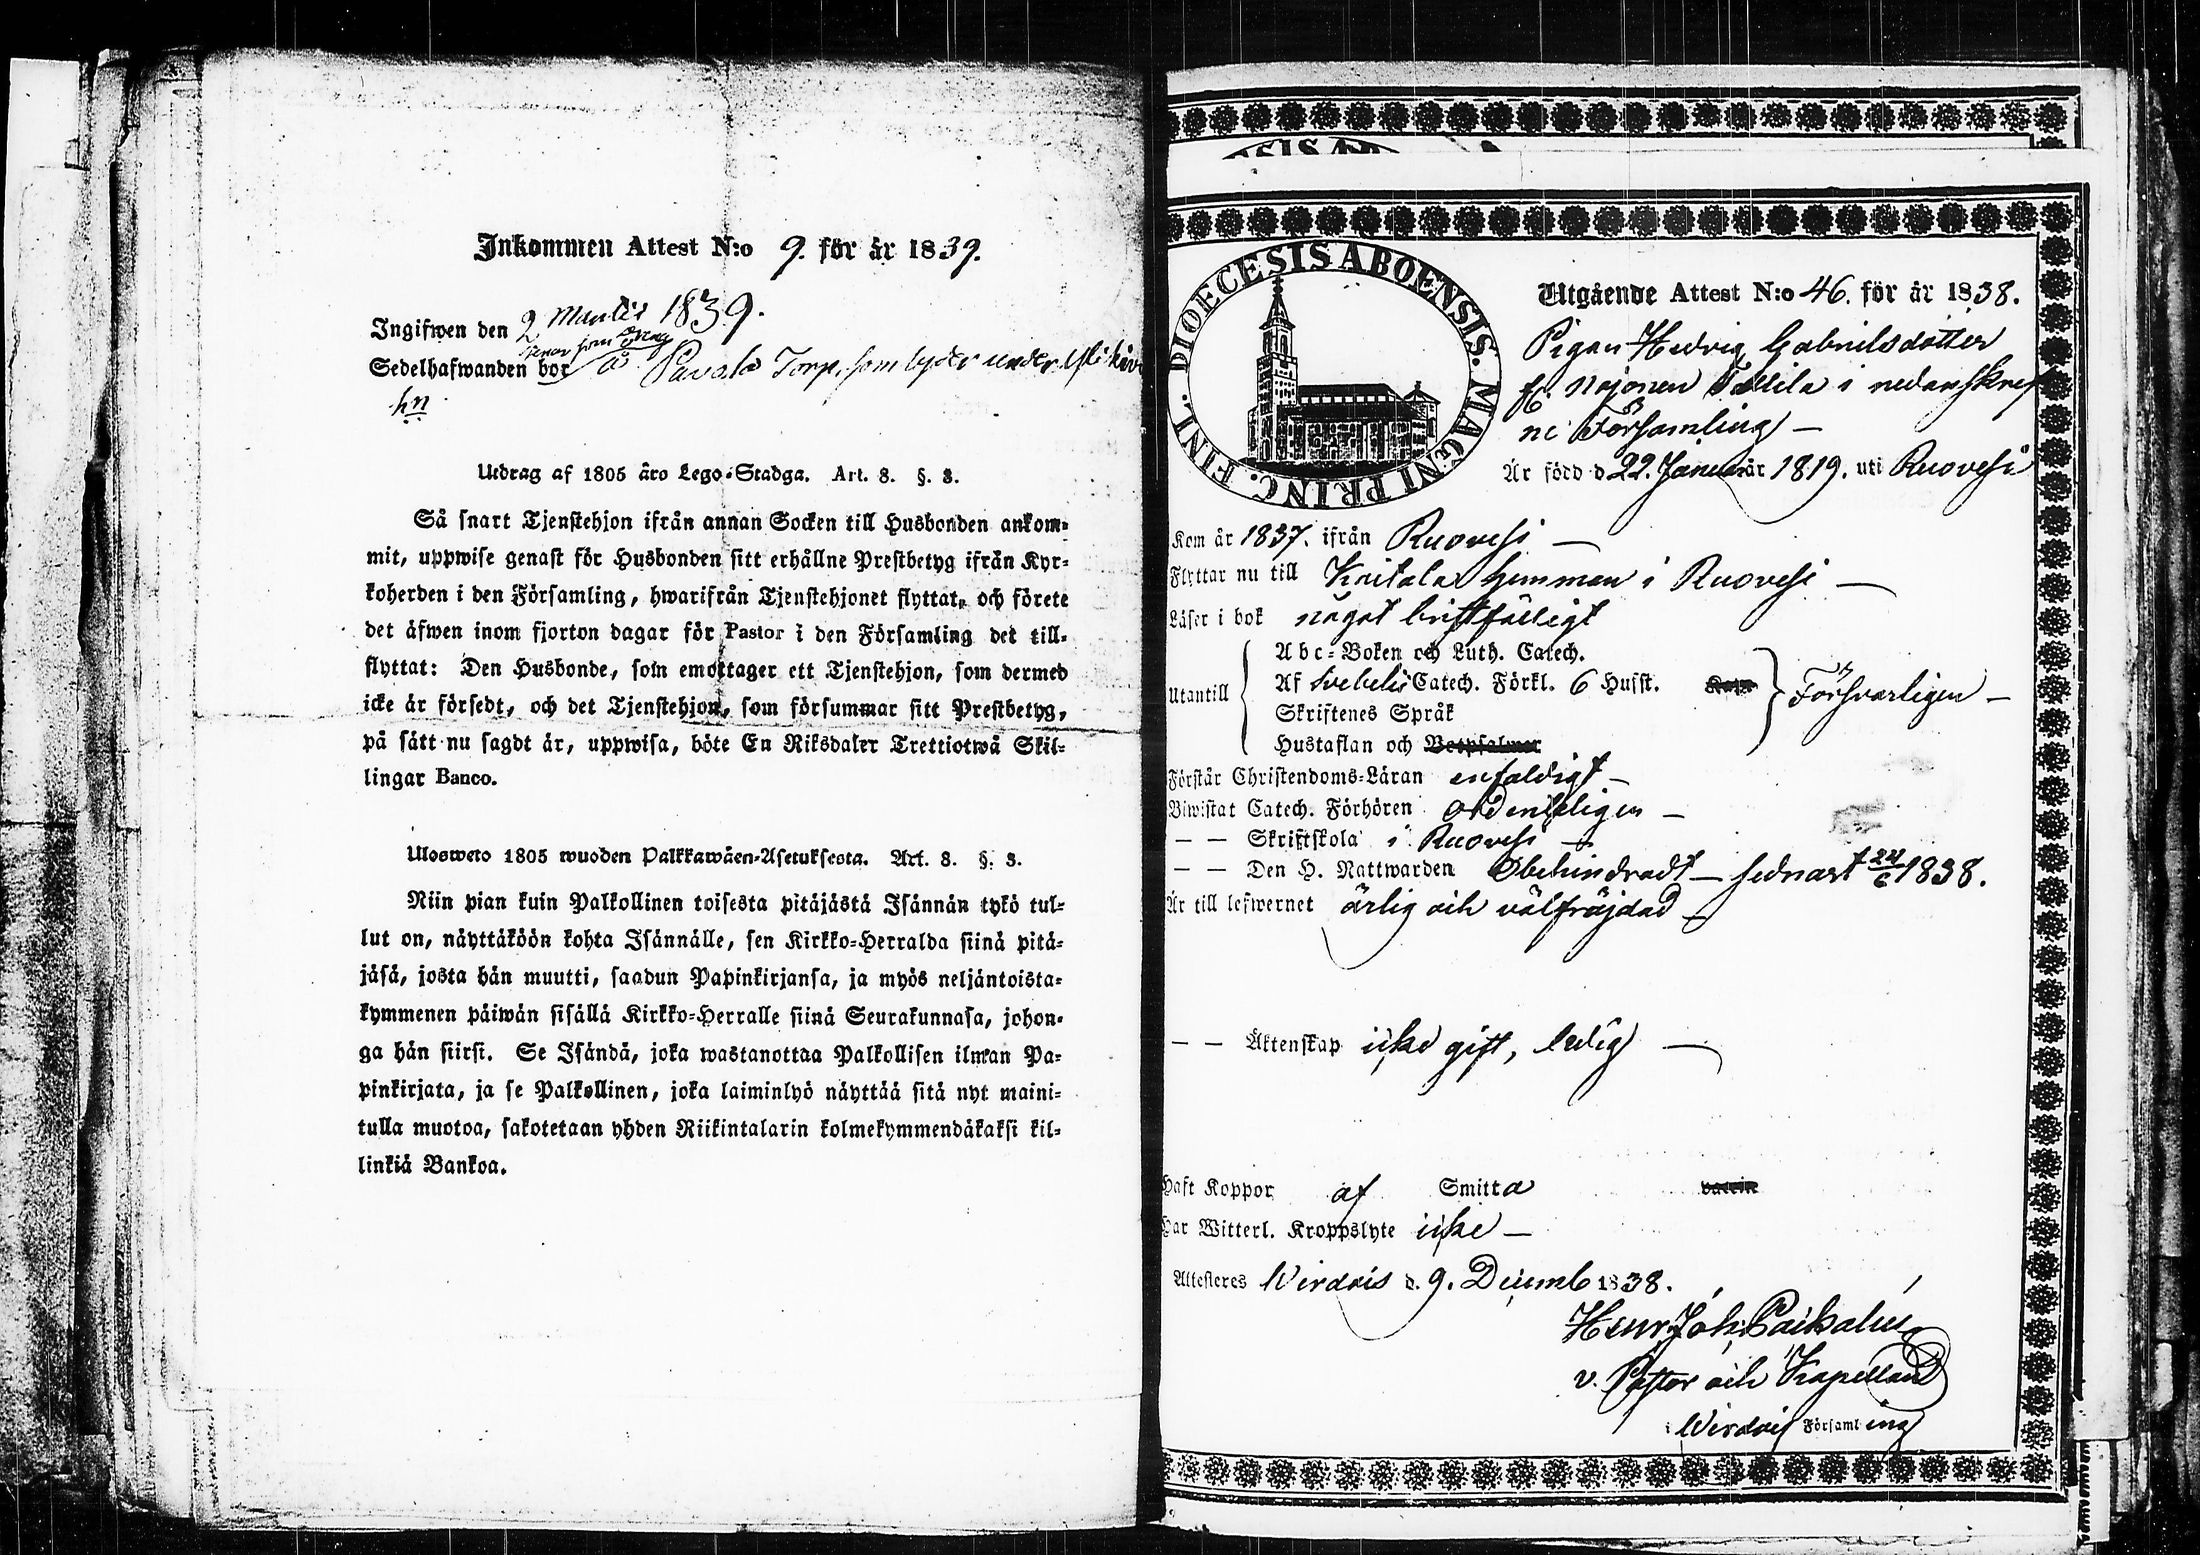 Inkommen Attest N:o 9. för år 1839.
Ingifwen den 2 Martii 1839.
tjenar som dräng
Sedelhafwanden bor å Pavala Torp, som lyder under
hn
Utdrag af 1805 års Lego-Stadga. Art. 8. §. 3.
Så snart Tjenstehjon ifrån annan Socken till Husbonden ankom-
mit, uppwise genast för Husbonden sitt erhållne Prestbetyg ifrån Kyr-
koherden i den Församling, hwarifrån Tjenstehjonet flyttat, och förete
det äfwen inom fjorton dagar för Pastor i den Församling det till-
flyttat: Den Husbonde, som emottager ett Tjenstehjon, som dermed
icke är försedt, och det Tjenstehjon, som försummar sitt Prestbetyg,
på sätt nu sagdt är, uppwisa, böte En Riksdaler Trettiotwå Skil-
lingar Banco.
Ulosweto 1805 wuoden Palkkawäen-Asetuksesta. Art. 8. §. 3.
Niin pian kuin Palkollinen toisesta pitäjästä Isännän tykö tul-
lut on, näyttäköön kohta Isännälle, sen Kirkko-Herralda siinä pitä-
jäsä, josta hän muutti, saadun Papinkirjansa, ja myös neljäntoista-
kymmenen päiwän sisällä Kirkko-Herralle siinä Seurakunnasa, johon-
ga hän siirsi. Se Isändä, joka wastanottaa Palkollisen ilman Pa-
pinkirjata, ja se Palkollinen, joka laiminlyö näyttää sitä nyt maini-
tulla muotoa, sakotetaan yhden Riikintalarin kolmekymmendäkaksi kil-
linkiä Bankoa.
DIOECESIS ABOENSIS. MAGNI PRINC. FINL.
Utgående Attest N:o 46. för år 1838.
Pigan Hedvig Gabrielsdotter
fr. Tallila i nedanskref
ne Församling —
Är född d 22. Januar år 1819. uti Ruovesi
Kom år 1837. ifrån Ruovesi —
Flyttar nu till hemman i Ruovesi —
Läser i bok något bristfälligt
Abc-Boken och Luth. Catech.
Utantill Af Svebelii Catech. Förkl. 6 Husst. Försvarligen —
Skriftenes Språk
Hustaflan och Botpsalmer
Förstår Christendoms-Läran enfaldigt —
Biwistat Catech. Förhören ordenteligen —
— — Skriftskola i Ruovesi —
— — Den H. Nattwarden Obehindradt — sednast 24/6 1838.
Är till lefwernet ärlig och välfräjdad —
— — Äktenskap icke gift, ledig —
Haft Koppor af Smitta vaccin
Har Witterl. Kroppslyte icke —
Attesteres Wirdois d. 9. Decemb 1838.
Henr. Joh.
v. Pastor och Kapellan
i Wirdois Församling